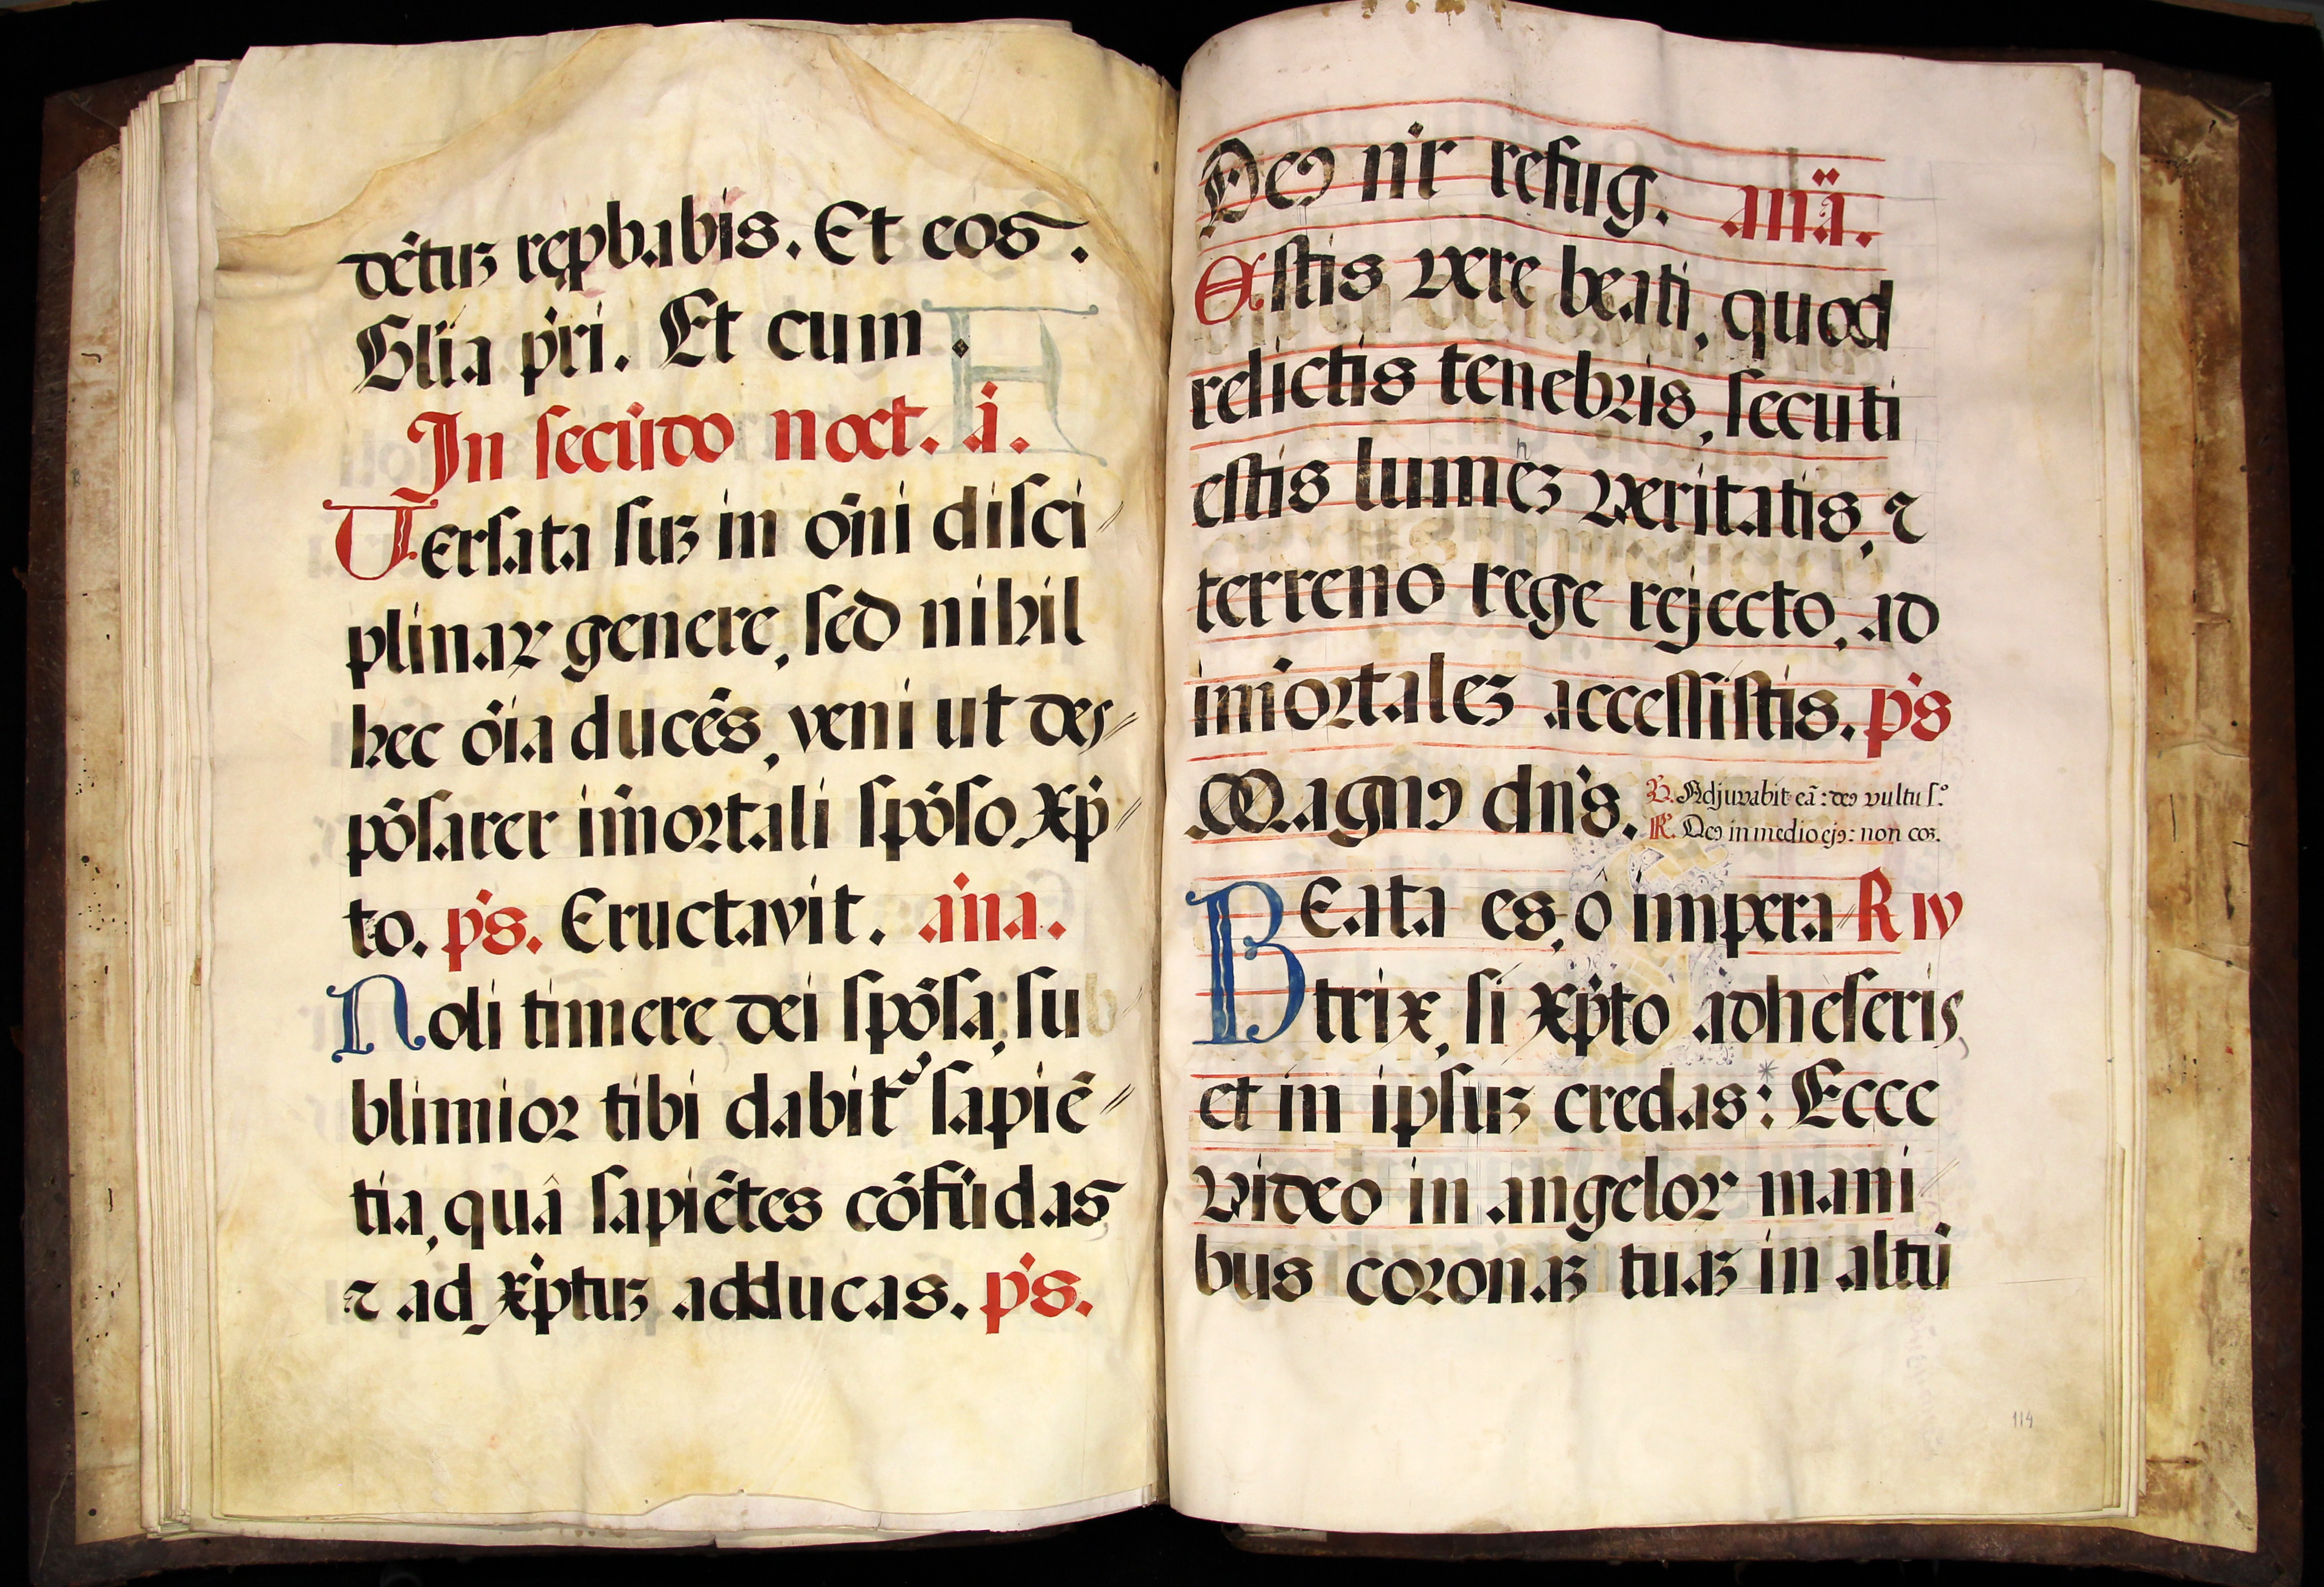 dẽtuꝫ reꝓbabis. Et eos.
Glĩa pr̃i. Et cum.
In secũdo noct. ã.
Versata suꝫ in om̃i disci⸗
plinaꝝ genere, sed nihil
hec õia ducẽs, veni ut des⸗
põsarer im̃ortali spõso, Xp̃⸗
to. ps̃. Eructavit. aña.
Noli timere dei spõsa, su
blimior tibi dabit᷑ sapiẽ⸗
tia, quâ sapiẽtes cõfũdas
⁊ ad Xp̃tuꝫ adducas. ps̃.
Deꝯ nr̃ refug. anã.
Estis vere beati, quod
relictis tenebris, secuti
estis lumẽꝫ veritatis, ⁊
terreno rege rejecto, ad
im̃ortaleꝫ accessistis. ps̃
Magnꝯ dñs.
℣. Adjuvabit eã: deꝯ vultu s.º
℟. Deꝯ in medio ejꝯ: non coꝫ.
BEata es, o impera⸗ R IV
trix, si Xp̃to adheseris,
et in ipsuꝫ credas: * Ecce
video in angeloꝝ mani⸗
bus coronaꝫ tuaꝫ in altũ
114